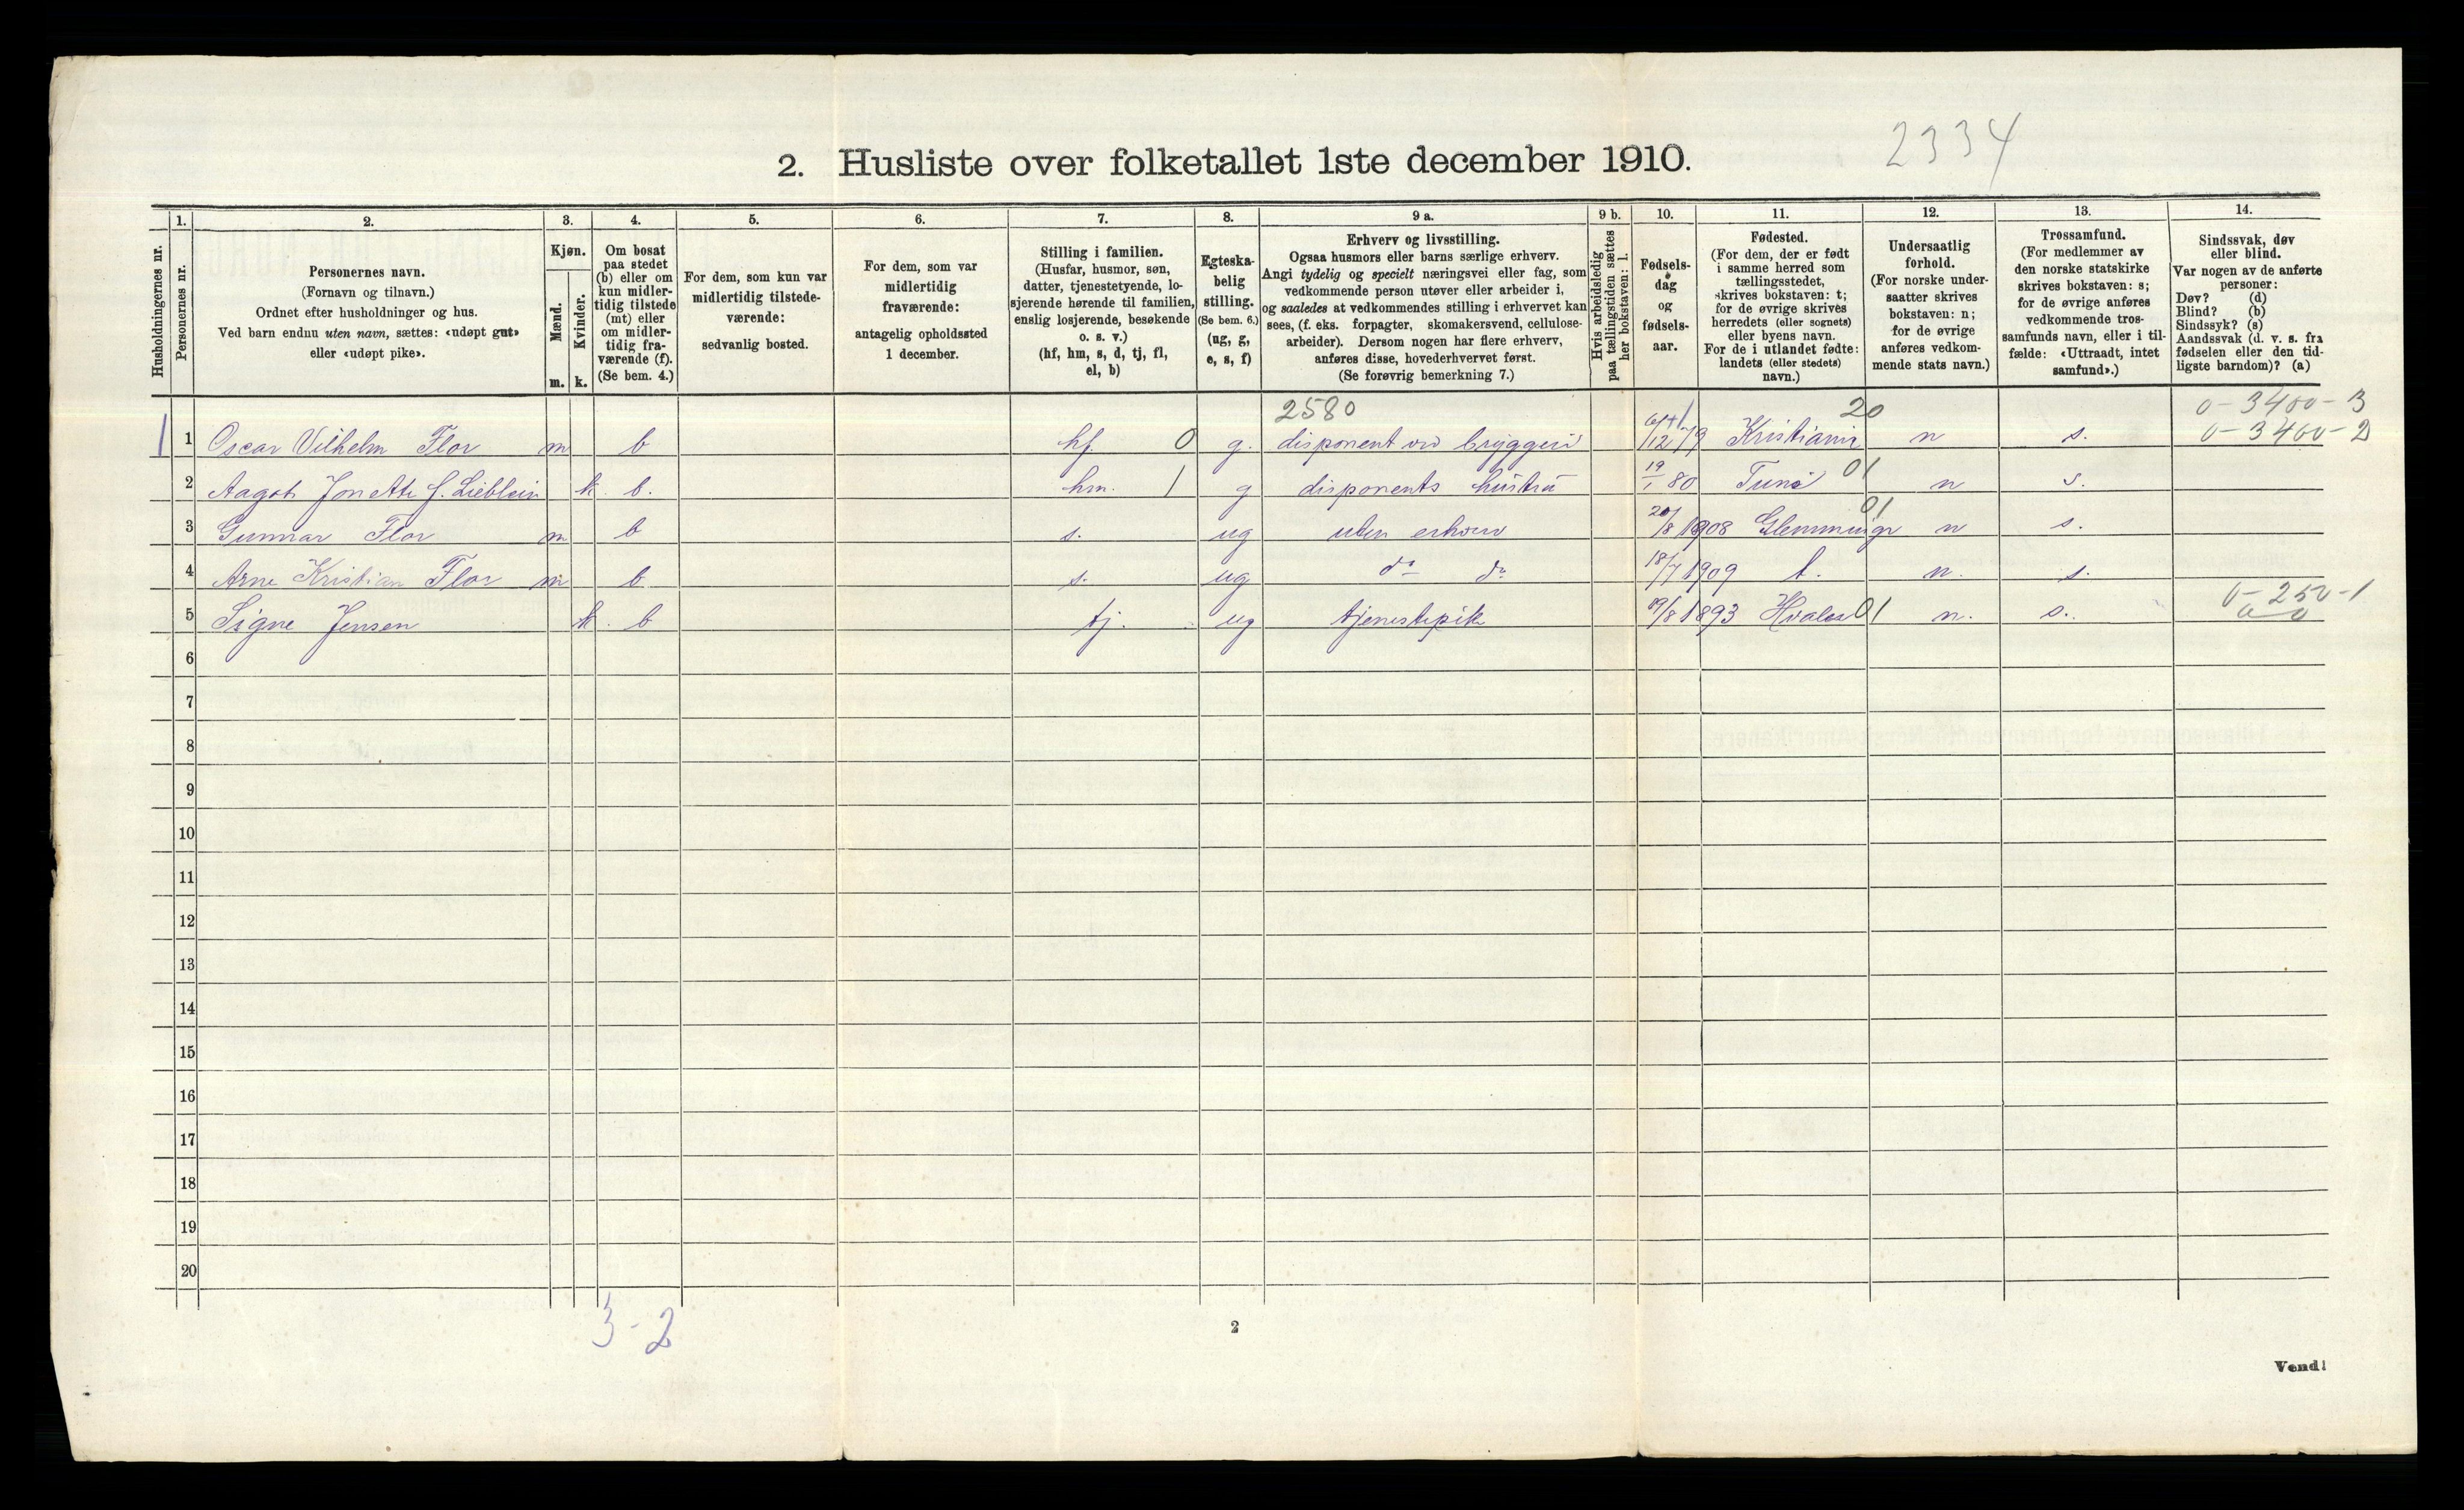 2334
2. Husliste over folketallet 1ste december 1910.
Husholdningernes nr.
1. Personernes nr.
2. Personernes navn.
(Fornavn og tilnavn.)
Ordnet efter husholdninger og hus.
Ved barn endnu uten navn, sættes: «udøpt gut»
eller «udøpt pike».
3. Kjøn.
Mænd. m.
Kvinder. k.
4. Om bosat
paa stedet
(b) eller om
kun midler-
tidig tilstede
(mt) eller
om midler-
tidig fra-
værende (f).
(Se bem. 4.)
5. For dem, som kun var
midlertidig tilstede-
værende:
sedvanlig bosted.
6. For dem, som var
midlertidig
fraværende:
antagelig opholdssted
1 december.
7. Stilling i familien.
(Husfar, husmor, søn,
datter, tjenestetyende, lo-
sjerende hørende til familien,
enslig losjerende, besøkende
o. s. v.)
(hf, hm, s, d, tj, fl,
el, b)
8. Egteska-
belig
stilling.
(Se bem. 6.)
(ug, g,
e, s, f)
9 a. Erhverv og livsstilling.
Ogsaa husmors eller barns særlige erhverv.
Angi tydelig og specielt næringsvei eller fag, som
vedkommende person utøver eller arbeider i,
og saaledes at vedkommendes stilling i erhvervet kan
sees, (f. eks. forpagter, skomakersvend, cellulose-
arbeider). Dersom nogen har flere erhverv,
anføres disse, hovederhvervet først.
(Se forøvrig bemerkning 7.)
9 b. Hvis arbeidsledig
paa tællingstiden sættes
her bokstaven: l.
10. Fødsels-
dag
og
fødsels-
aar.
11. Fødested.
(For dem, der er født
i samme herred som
tællingsstedet,
skrives bokstaven: t;
for de øvrige skrives
herredets (eller sognets)
eller byens navn.
For de i utlandet fødte:
landets (eller stedets)
navn.)
12. Undersaatlig
forhold.
(For norske under-
saatter skrives
bokstaven: n;
for de øvrige
anføres vedkom-
mende stats navn.)
13. Trossamfund.
(For medlemmer av
den norske statskirke
skrives bokstaven: s;
for de øvrige anføres
vedkommende tros-
samfunds navn, eller i til-
fælde: «Uttraadt, intet
samfund».)
14. Sindssvak, døv
eller blind.
Var nogen av de anførte
personer:
Døv? (d)
Blind? (b)
Sindssyk? (s)
Aandssvak (d. v. s. fra
fødselen eller den tid-
ligste barndom)? (a)
2580 20 0-3400-3
1 1 Oscar Vilhelm Flor m b hf. 0 g. disponent ved bryggeri 12 79 Kristiania n s. 0-3400-2
2 Aagot Jonette f. Lieblein k. b. hm. 1 g disponents hustru 19/1 80 Tune 01 n s.
3 Gunnar Flor m b s. ug uten erhverv 20/8 1908 Glemminge 01 n s.
4 Arne Kristian Flor m b s. ug do do 18/7 1909 t. n. s.
5 Signe Jensen k. b tj. ug tjenestepike 8 1893 Hvaler 01 n. s. 0-250-1
0-0
6
7
8
9
10
11
12
13
14
15
16
17
18
19
20
3-2
2
Vend!